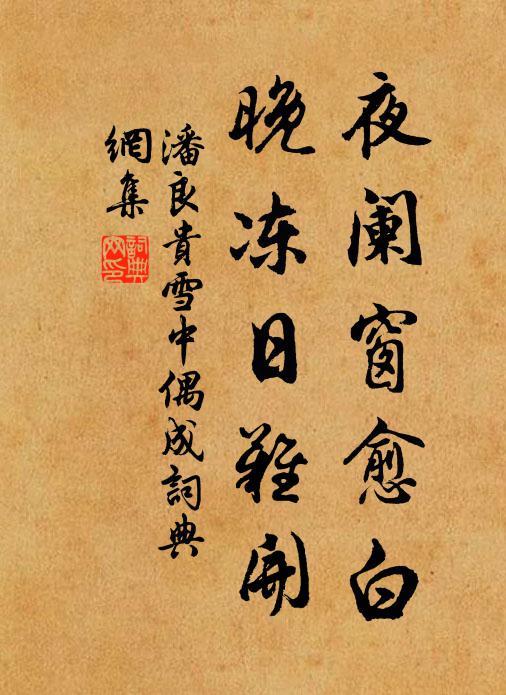 夜阑窗愈白
晚冻日难開
潘良貴雪中偶成詞典
網集
詞典
网印